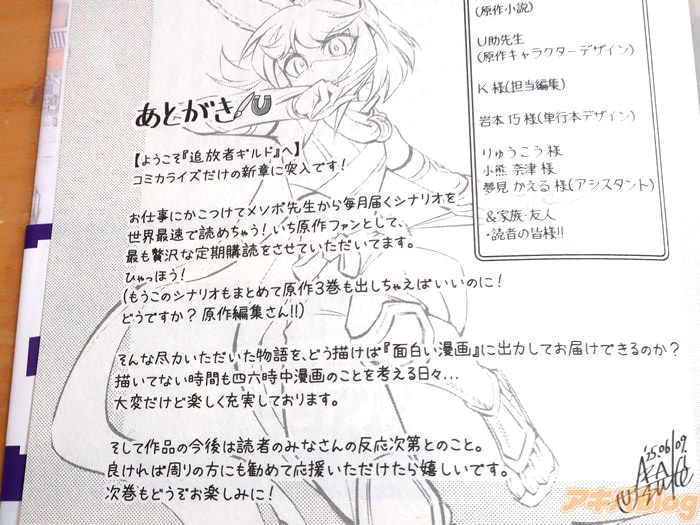 あとがき
【ようこそ『追放者ギルド』へ】
コミカライズだけの新章に突入です!
お仕事にかこつけてメソポ先生から毎月届くシナリオを
世界最速で読めちゃう!いち原作ファンとして、
最も贅沢な定期購読をさせていただいてます。
ひゃっほう!
(もうこのシナリオもまとめて原作3巻も出しちゃえばいいのに!
どうですか?原作編集さん!!)
そんな尽力いただいた物語を、どう描けば『面白い漫画』に出力してお届けできるのか?
描いてない時間も四六時中漫画のことを考える日々...
大変だけど楽しく充実しております。
そして作品の今後は読者のみなさんの反応次第とのこと。
良ければ周りの方にも勧めて応援いただけたら嬉しいです。
次巻もどうぞお楽しみに!
(原作小説)
U助先生
(原作キャラクターデザイン)
K様(担当編集)
岩本 巧 様(単行本デザイン)
りゅうこう 様
小熊 奈津 様
夢見 かえる 様(アシスタント)
&家族・友人
・読者の皆様!!
'25.06/09
アキバBlog